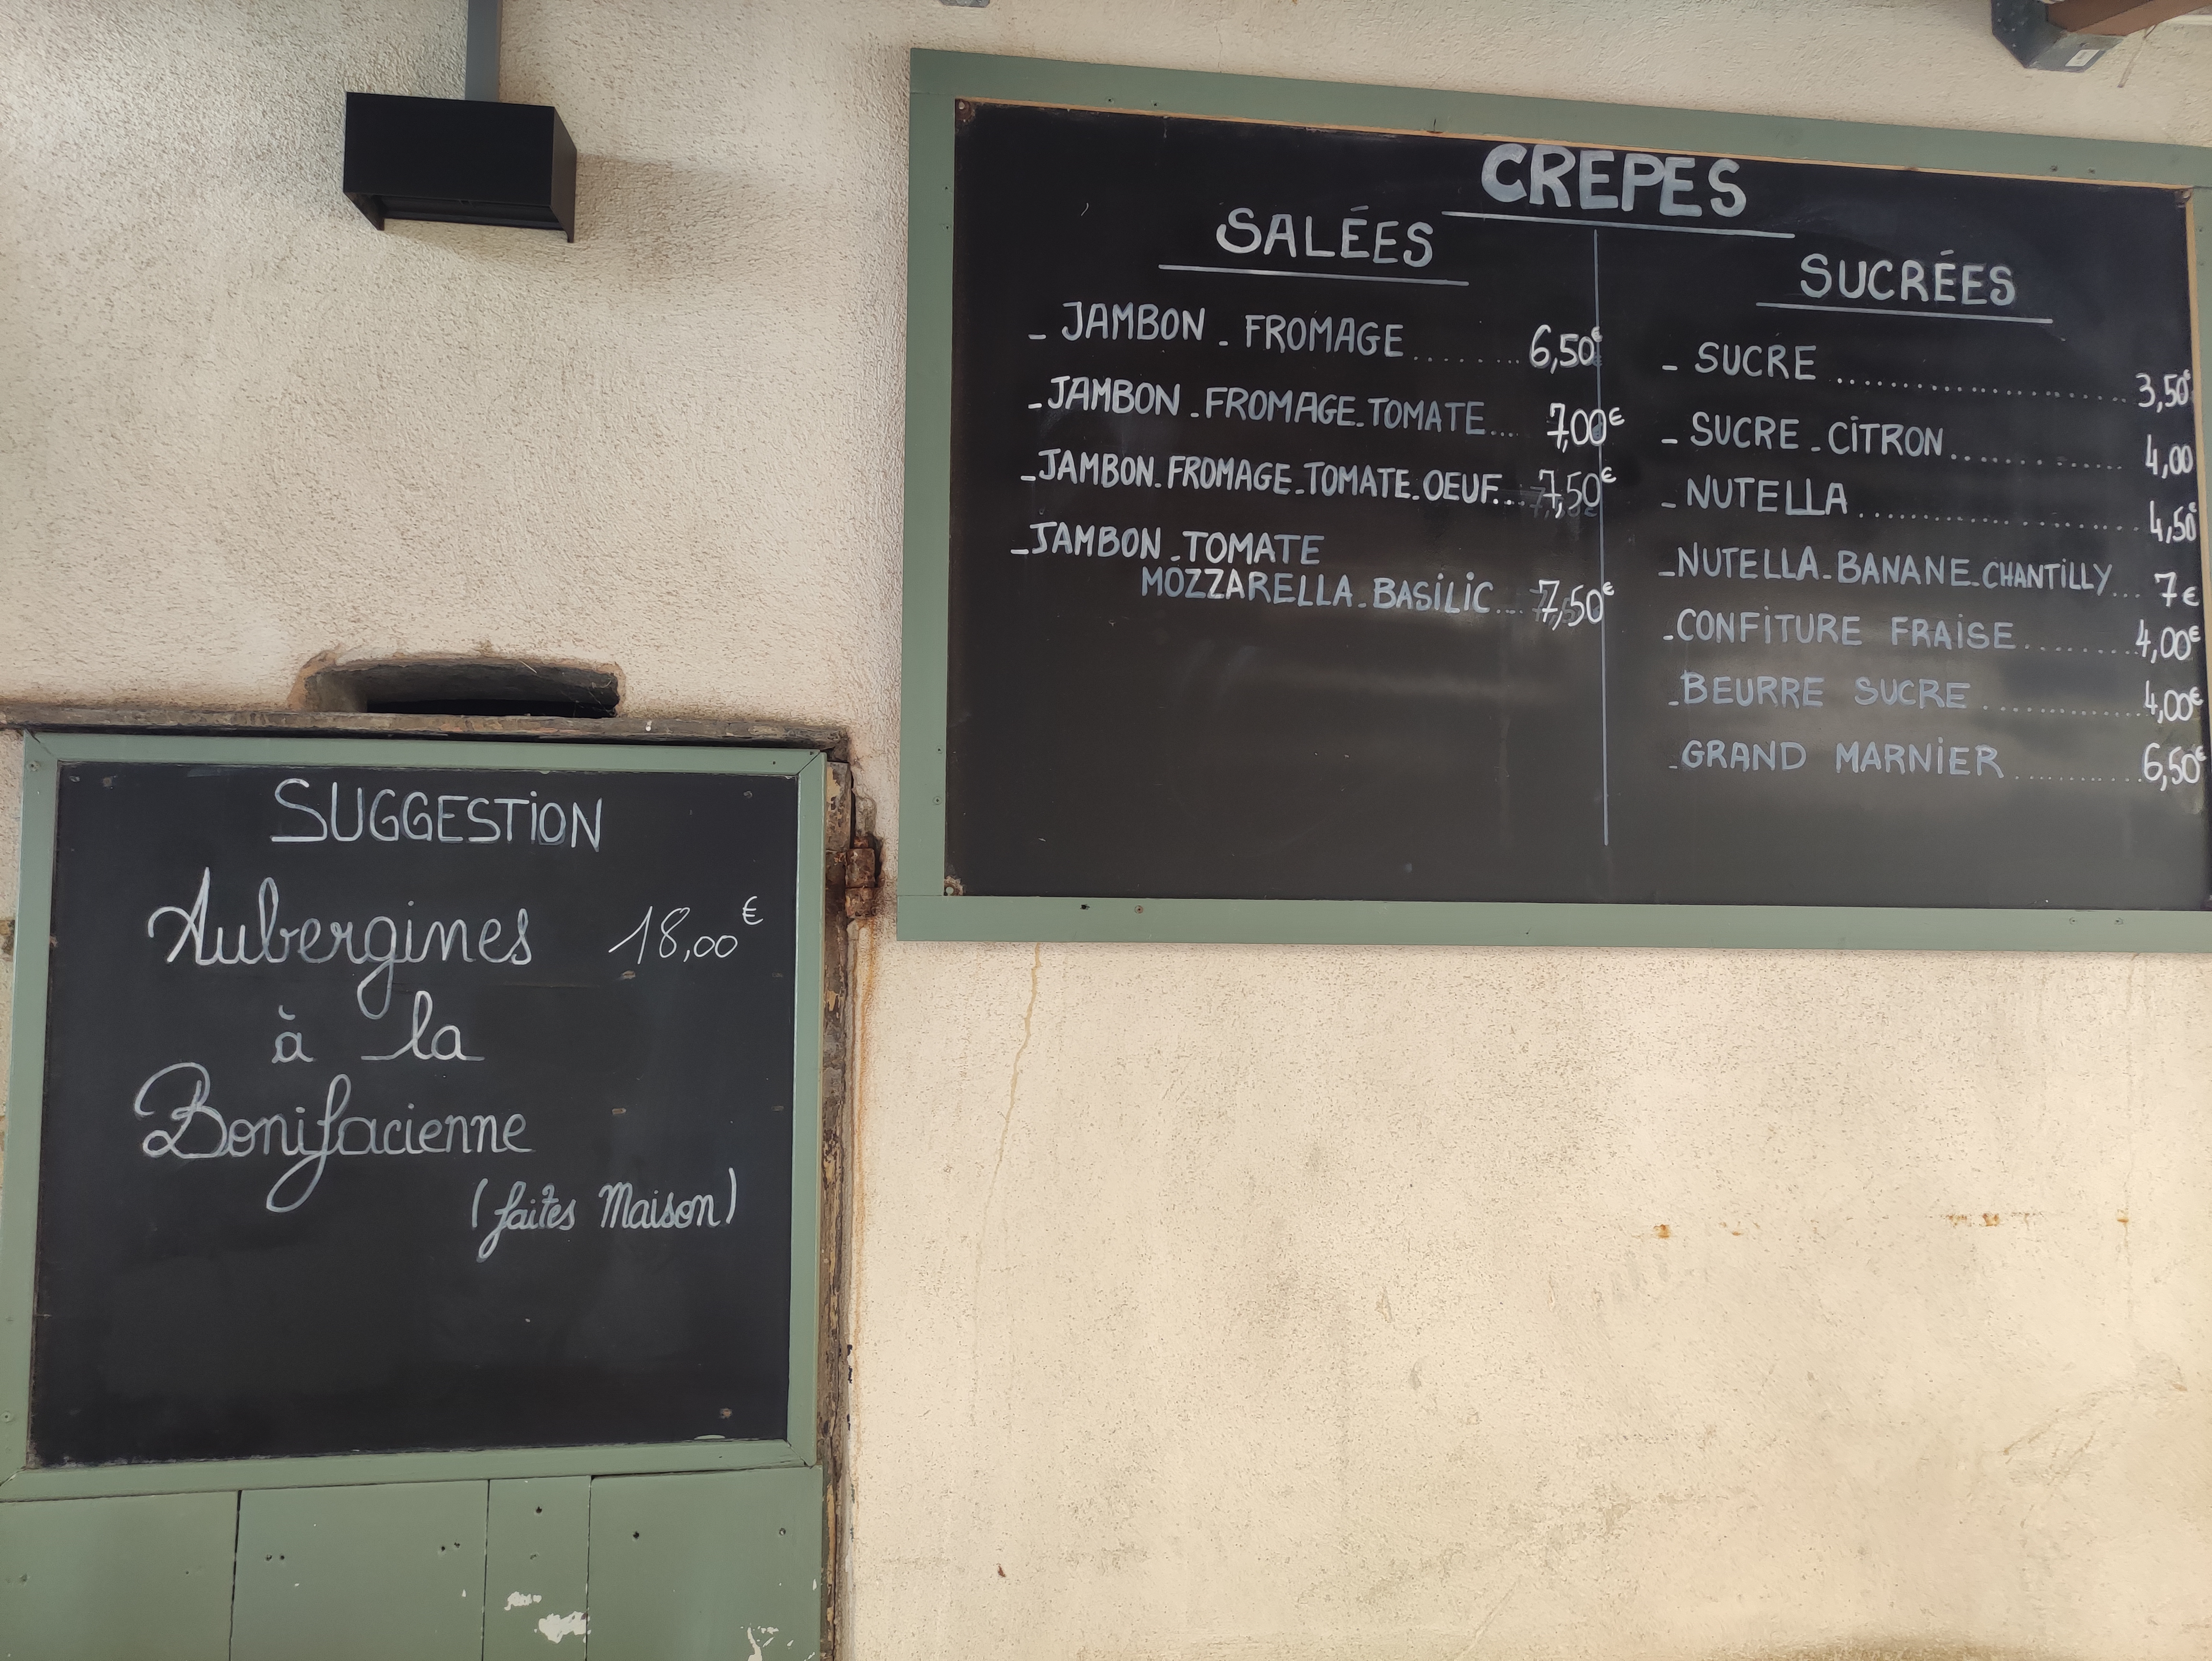 CREPES
SALÉES
- JAMBON - FROMAGE ........ 6,50€
- JAMBON - FROMAGE - TOMATE .... 7,00€
- JAMBON - FROMAGE - TOMATE - OEUF... 7,50€
- JAMBON - TOMATE
MOZZARELLA - BASILIC ... 7,50€
SUCRÉES
- SUCRE ........................ 3,50€
- SUCRE - CITRON .............. 4,00
- NUTELLA ...................... 4,50€
- NUTELLA - BANANE - CHANTILLY ... 7€
- CONFITURE FRAISE ......... 4,00€
- BEURRE SUCRE .............. 4,00€
- GRAND MARNIER ............ 6,50€
SUGGESTION
Aubergines 18,00€
à la
Bonifacienne
(faites Maison)